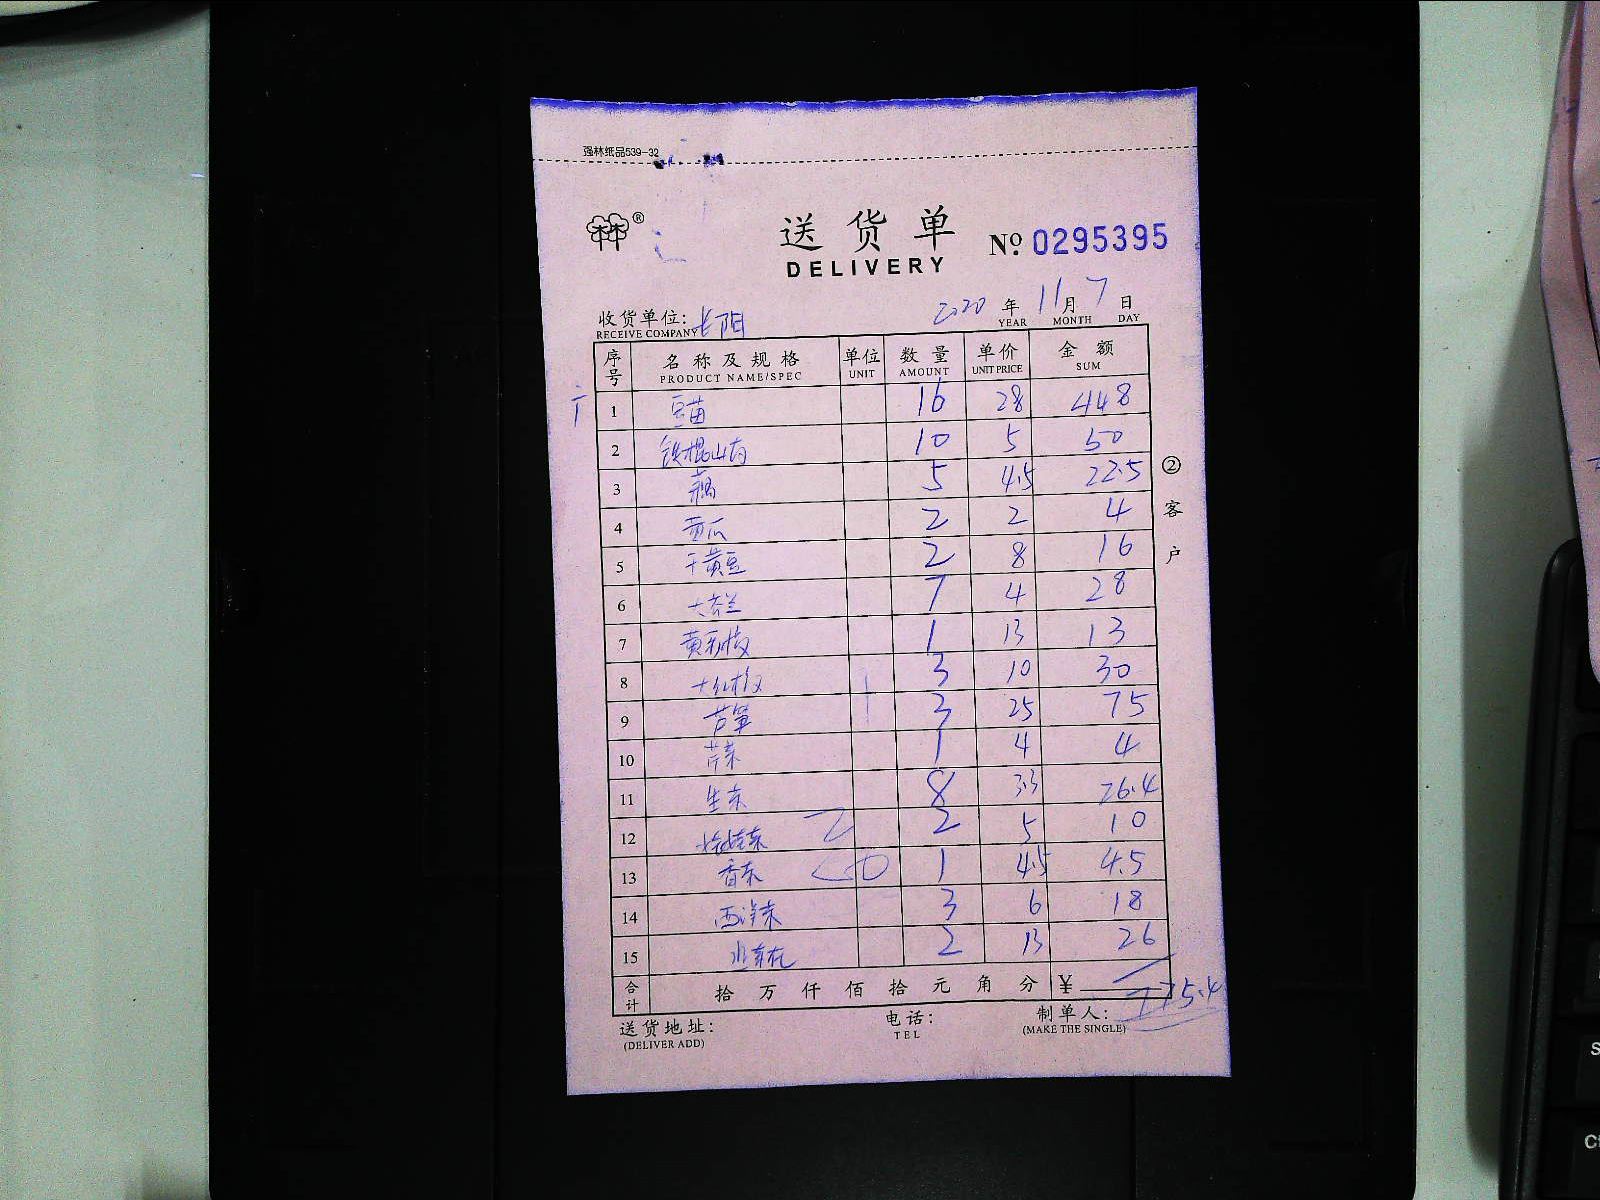 强林纸品539-32
送货单
DELIVERY
№ 0295395
收货单位: 长阳 2020年11月7日
RECEIVE COMPANY YEAR MONTH DAY
序号 名称及规格 单位 数量 单价 金额
PRODUCT NAME/SPEC UNIT AMOUNT UNIT PRICE SUM
1 豆苗 16 28 448
2 铁棍山药 10 5 50
3 藕 5 4.5 22.5
4 黄瓜 2 2 4
5 干黄豆 2 8 16
6 7 4 28
7 黄彩椒 1 13 13
8 大红椒 3 10 30
9 芦笋 3 25 75
10 芹菜 1 4 4
11 生菜 8 3.3 26.4
12 娃娃菜 2 5 10
13 香菜 1 4.5 4.5
14 西洋菜 3 6 18
15 2 13 26
合计 拾万仟佰拾元角分 ¥ 775.4
②客户
送货地址: 电话: 制单人:
(DELIVER ADD) TEL (MAKE THE SINGLE)